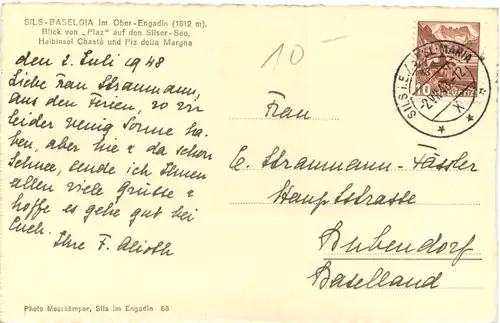 SILS-BASELGIA im Ober-Engadin (1812 m).
Blick von „Plaz" auf den Silser-See,
Halbinsel Chastè und Piz della Margna
10-
den 2. Juli 1948
Liebe Frau Straumann,
aus den Ferien, wo wir
leider wenig Sonne ha-
ben, aber hie & da schon
Schnee, sende ich Ihnen
allen viele Grüsse &
hoffe es gehe gut bei
Euch. Ihre F. Alioth
Frau
E. Straumann-Fässler
Hauptstrasse
Bubendorf
Baselland
10
Photo Meerkämper, Sils im Engadin 68